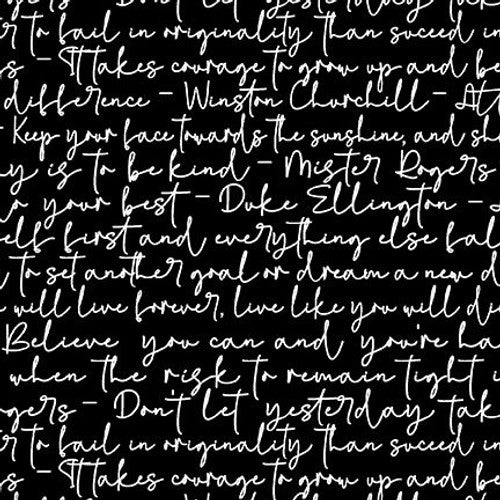 Don't Let yesterday tak
r to fail in originality than suceed in
rs - It takes courage to grow up and be
difference - Winston Churchill - At
Keep your face towards the sunshine, and sh
y is to be kind - Mister Rogers
o your best - Duke Ellington -
elf first and everything else fal
to set another goal or dream a new d
will live forever, live like you will di
Believe you can and you're ha
when the risk to remain tight i
gers - Don't Let yesterday tak
r to fail in originality than suceed in
rs - It takes courage to grow up and be